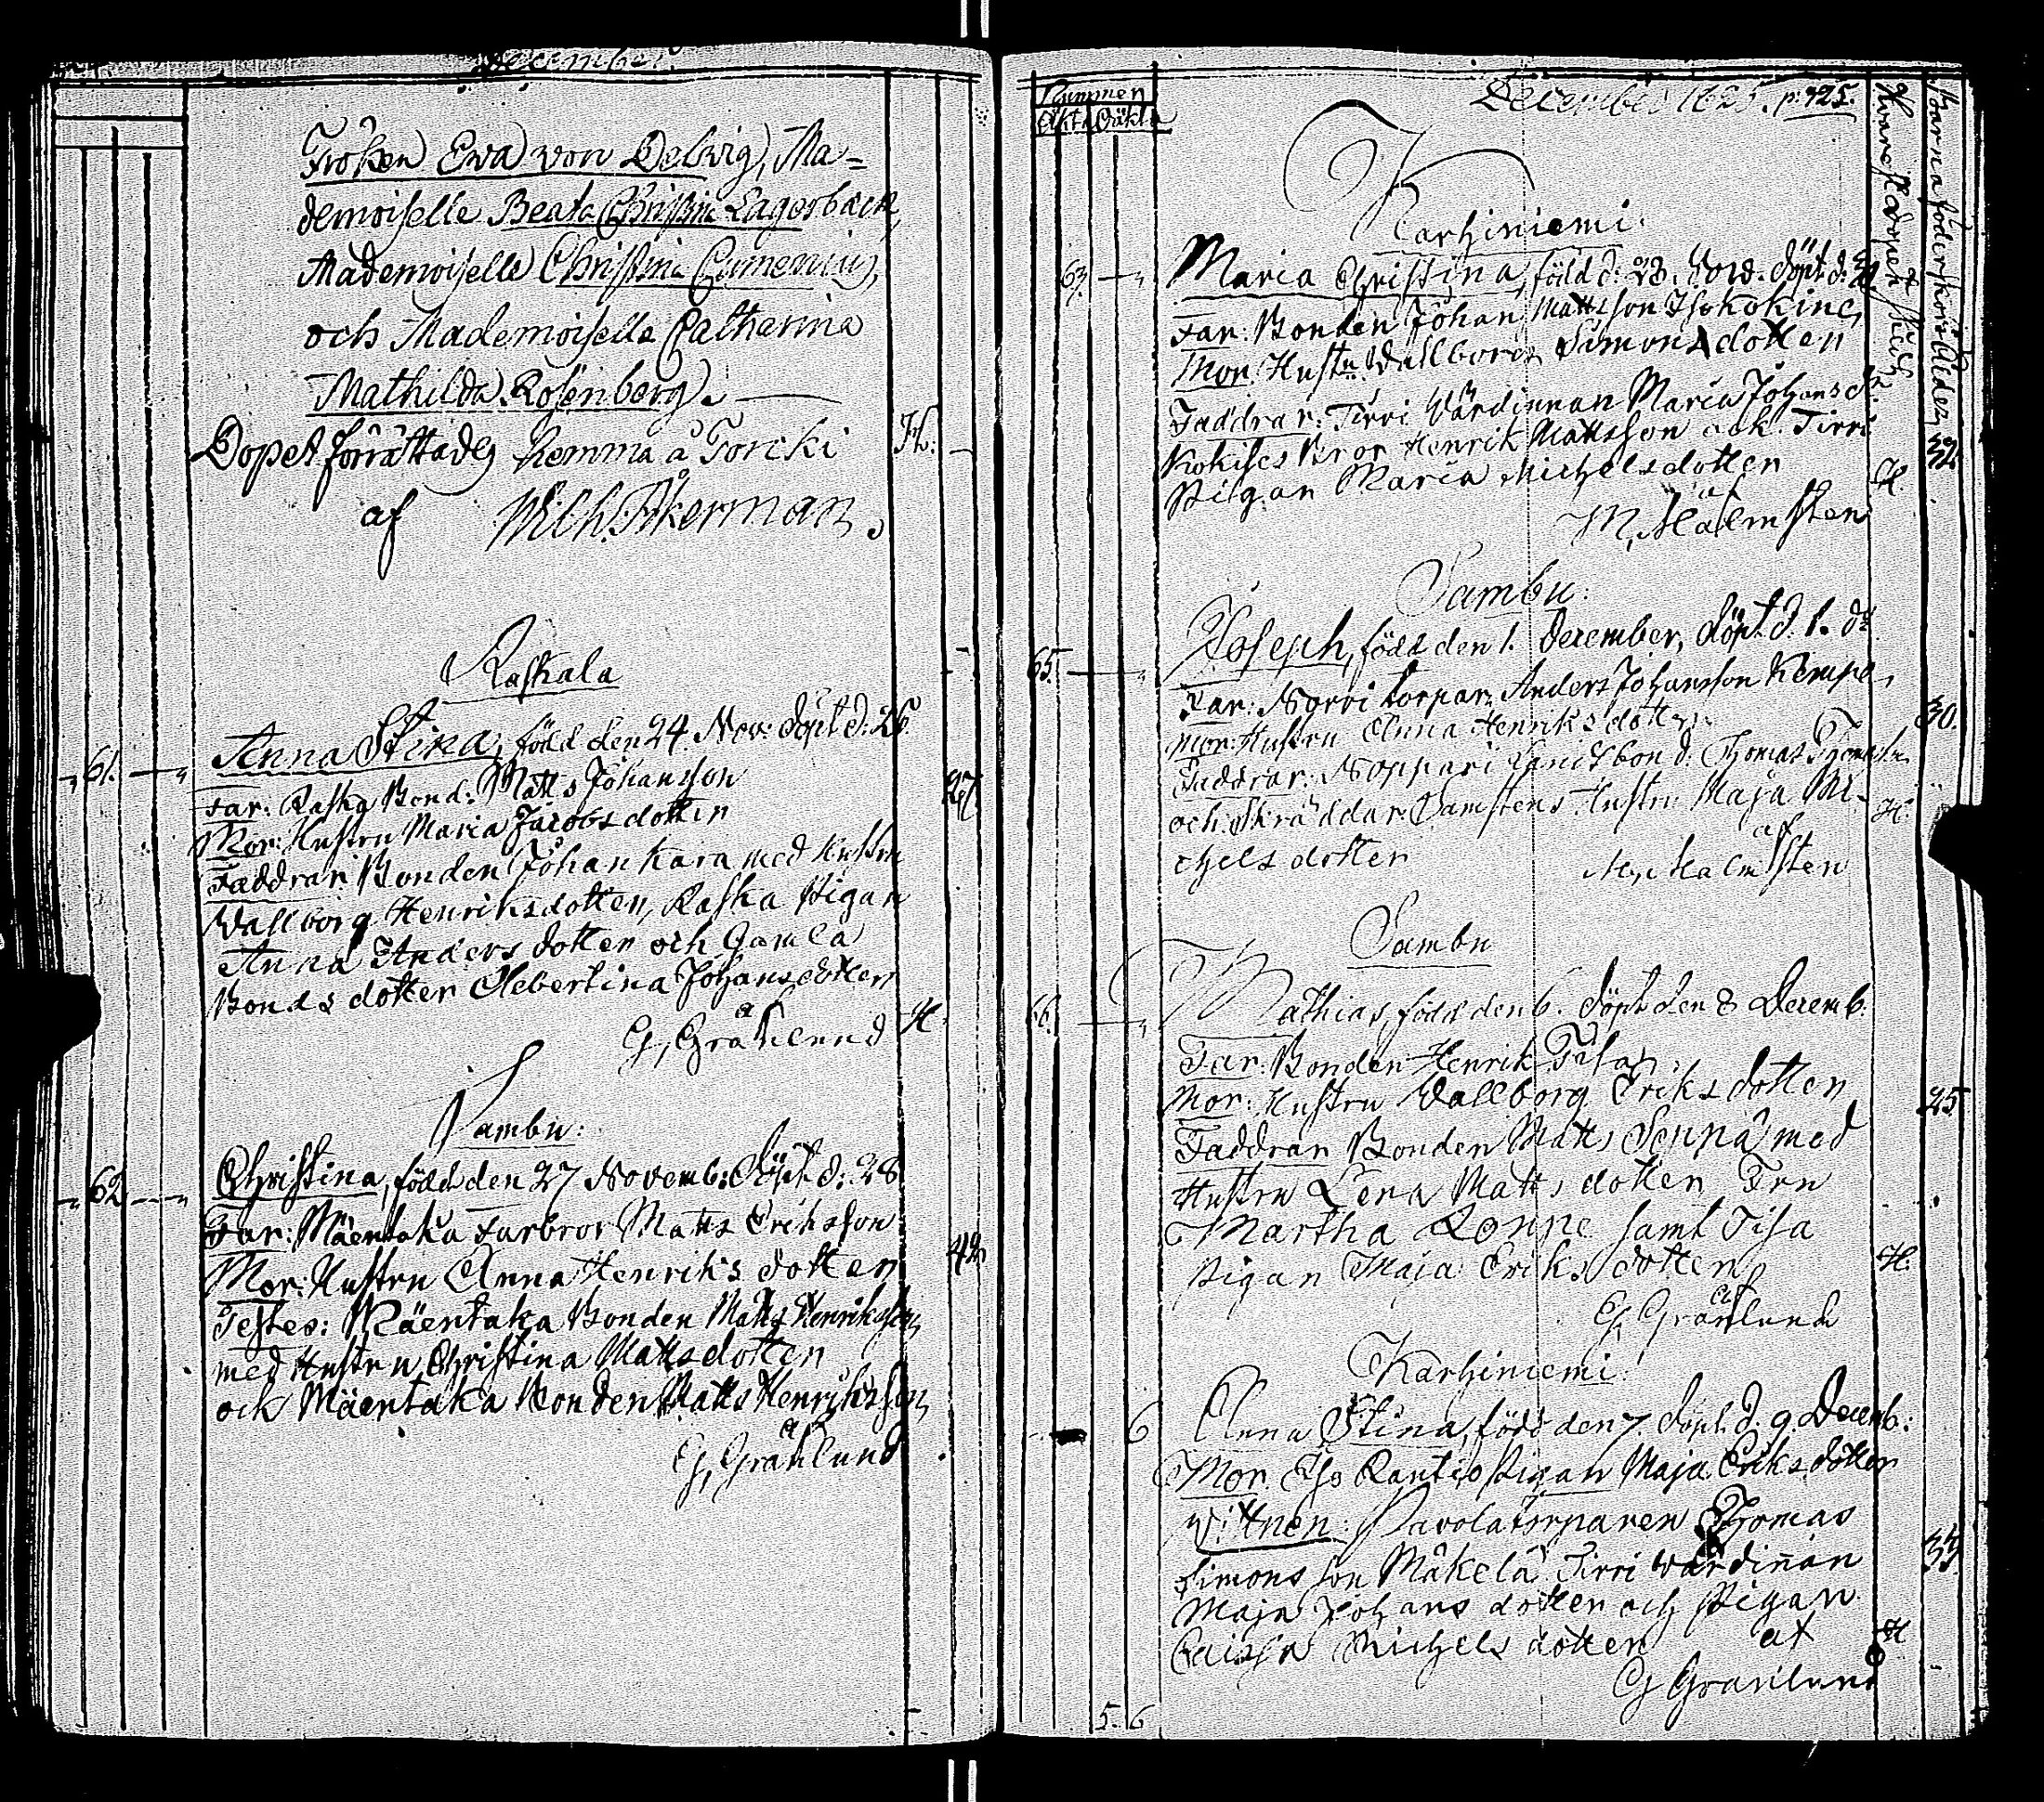 December
Fröken Ewa von Delwig, Ma=
demoiselle Beata Christina Lagerbäck,
Mademoiselle Christina
och Mademoiselle Catharina
Mathilda Rosenberg.
Dopet förrättades hemma å Torcki
H.
af Wilh. Åkerman.
Raskala
61. Anna Stina, född den 24 Nov: döpt d: 26
Far: Raska Bond: Matts Johansson
27
Mor: Hustru Maria Jacobsdotter
Faddrar: Bonden Johan Kara med hustru
Wallborg Henriksdotter, Raska Pigan
Anna Andersdotter och Gamla
Bonds dotter Albertina Johansdotter
af
G, Granlund
H.
Sambu:
62 Christina, född den 27 Novemb: döpt d: 28
Far: Mäentaka Farbror Matts Eriksson
42
Mor: Hustru Anna Henriksdotter
Testes: Mäentaka Bonden Matts Henriksson
med Hustru Christina Mattsdotter
och Mäentaka Bonden Matts Henriksson
af
G, Granlund
Nummer
Äkta Oäkta
December 1825. p. 425.
Hvarest dopet skedt
Barnaföderskors Ålder
Karhiniemi.
Maria Christina, född d: 28. Nov. döpt d:
Far: Bonden Johan Mattsson Isokokine
Mor: Hustru Wallborg Simonsdotter
Faddrar: Tirri Wärdinnan Maria Johansdr
32
Kokises Bror Henrik Mattsson och Tirri
Pigan Maria Michelsdotter
H
af
M, Malmsten
Sambu:
65. Joseph, född den 1. December, döpt d. 1. do
Far: Norri torpar: Anders Johansson Kempe
30.
Mor: Hustru Anna Henriksdotter
Faddrar: Noppari Landtbond: Thomas Thomass:
och Skräddar Damstens Hustru Maja Mi-
H.
chelsdotter
af
M, Malmsten
Sambu
66. Mathias, född den 6. döpt den 8 Decemb.
Far: Bonden Henrik Tisa
Mor: Hustru Wallborg Eriksdotter
25
Faddrar Bonden Matts Seppä med
Hustru Lena Mattsdotter Fru
Martha Ronne samt Tisa
Pigan Maja Eriksdotter
H.
af
G, Granlund
Karhiniemi:
6 Anna Stina, född den 7. döpt d. 9. Decemb:
Mor. Iso Rantis Pigan Maja Eriksdotter
Wittnen: Pavolatorparen Thomas
Simonsson Mäkelä Tirri wärdinan
Maja Johansdotter och Pigan
Caissa Michelsdotter
H
af
G Granlund
5. 6